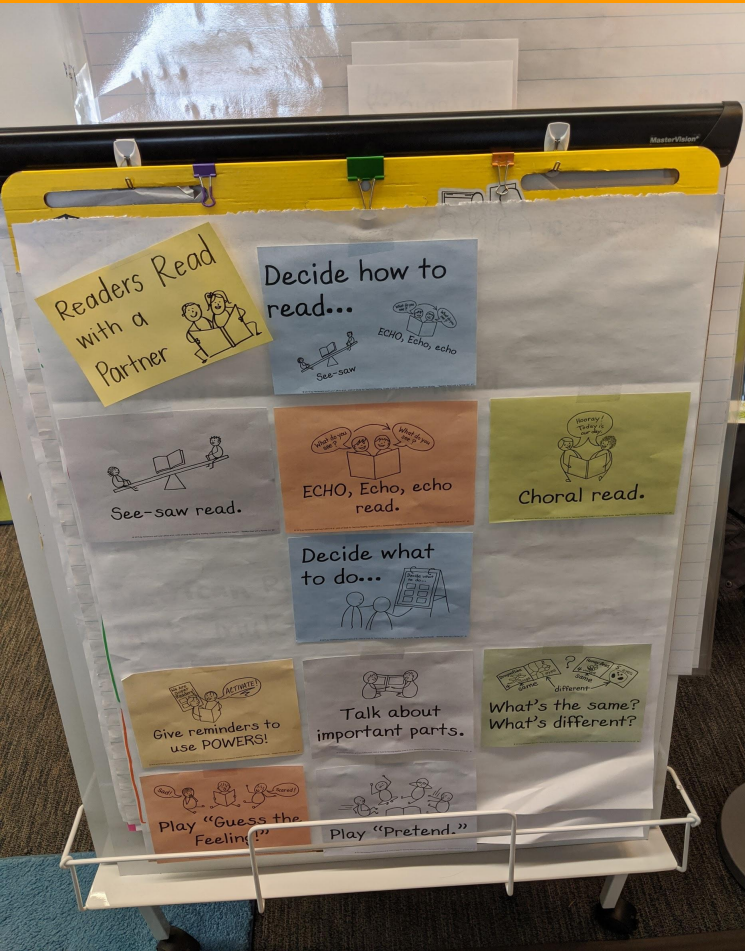 MasterVision
Readers Read
with a
Partner
Decide how to
read...
See-saw
ECHO, Echo, echo
See-saw read.
What do you
see?
What do you
see?
ECHO, Echo, echo
read.
Hooray!
Today is
our day.
Choral read.
Decide what
to do...
Decide what
to do...
ACTIVATE!
Give reminders to
use POWERS!
Talk about
important parts.
?
same
different
same
What's the same?
What's different?
Play "Guess the
Feeling!"
Play "Pretend."